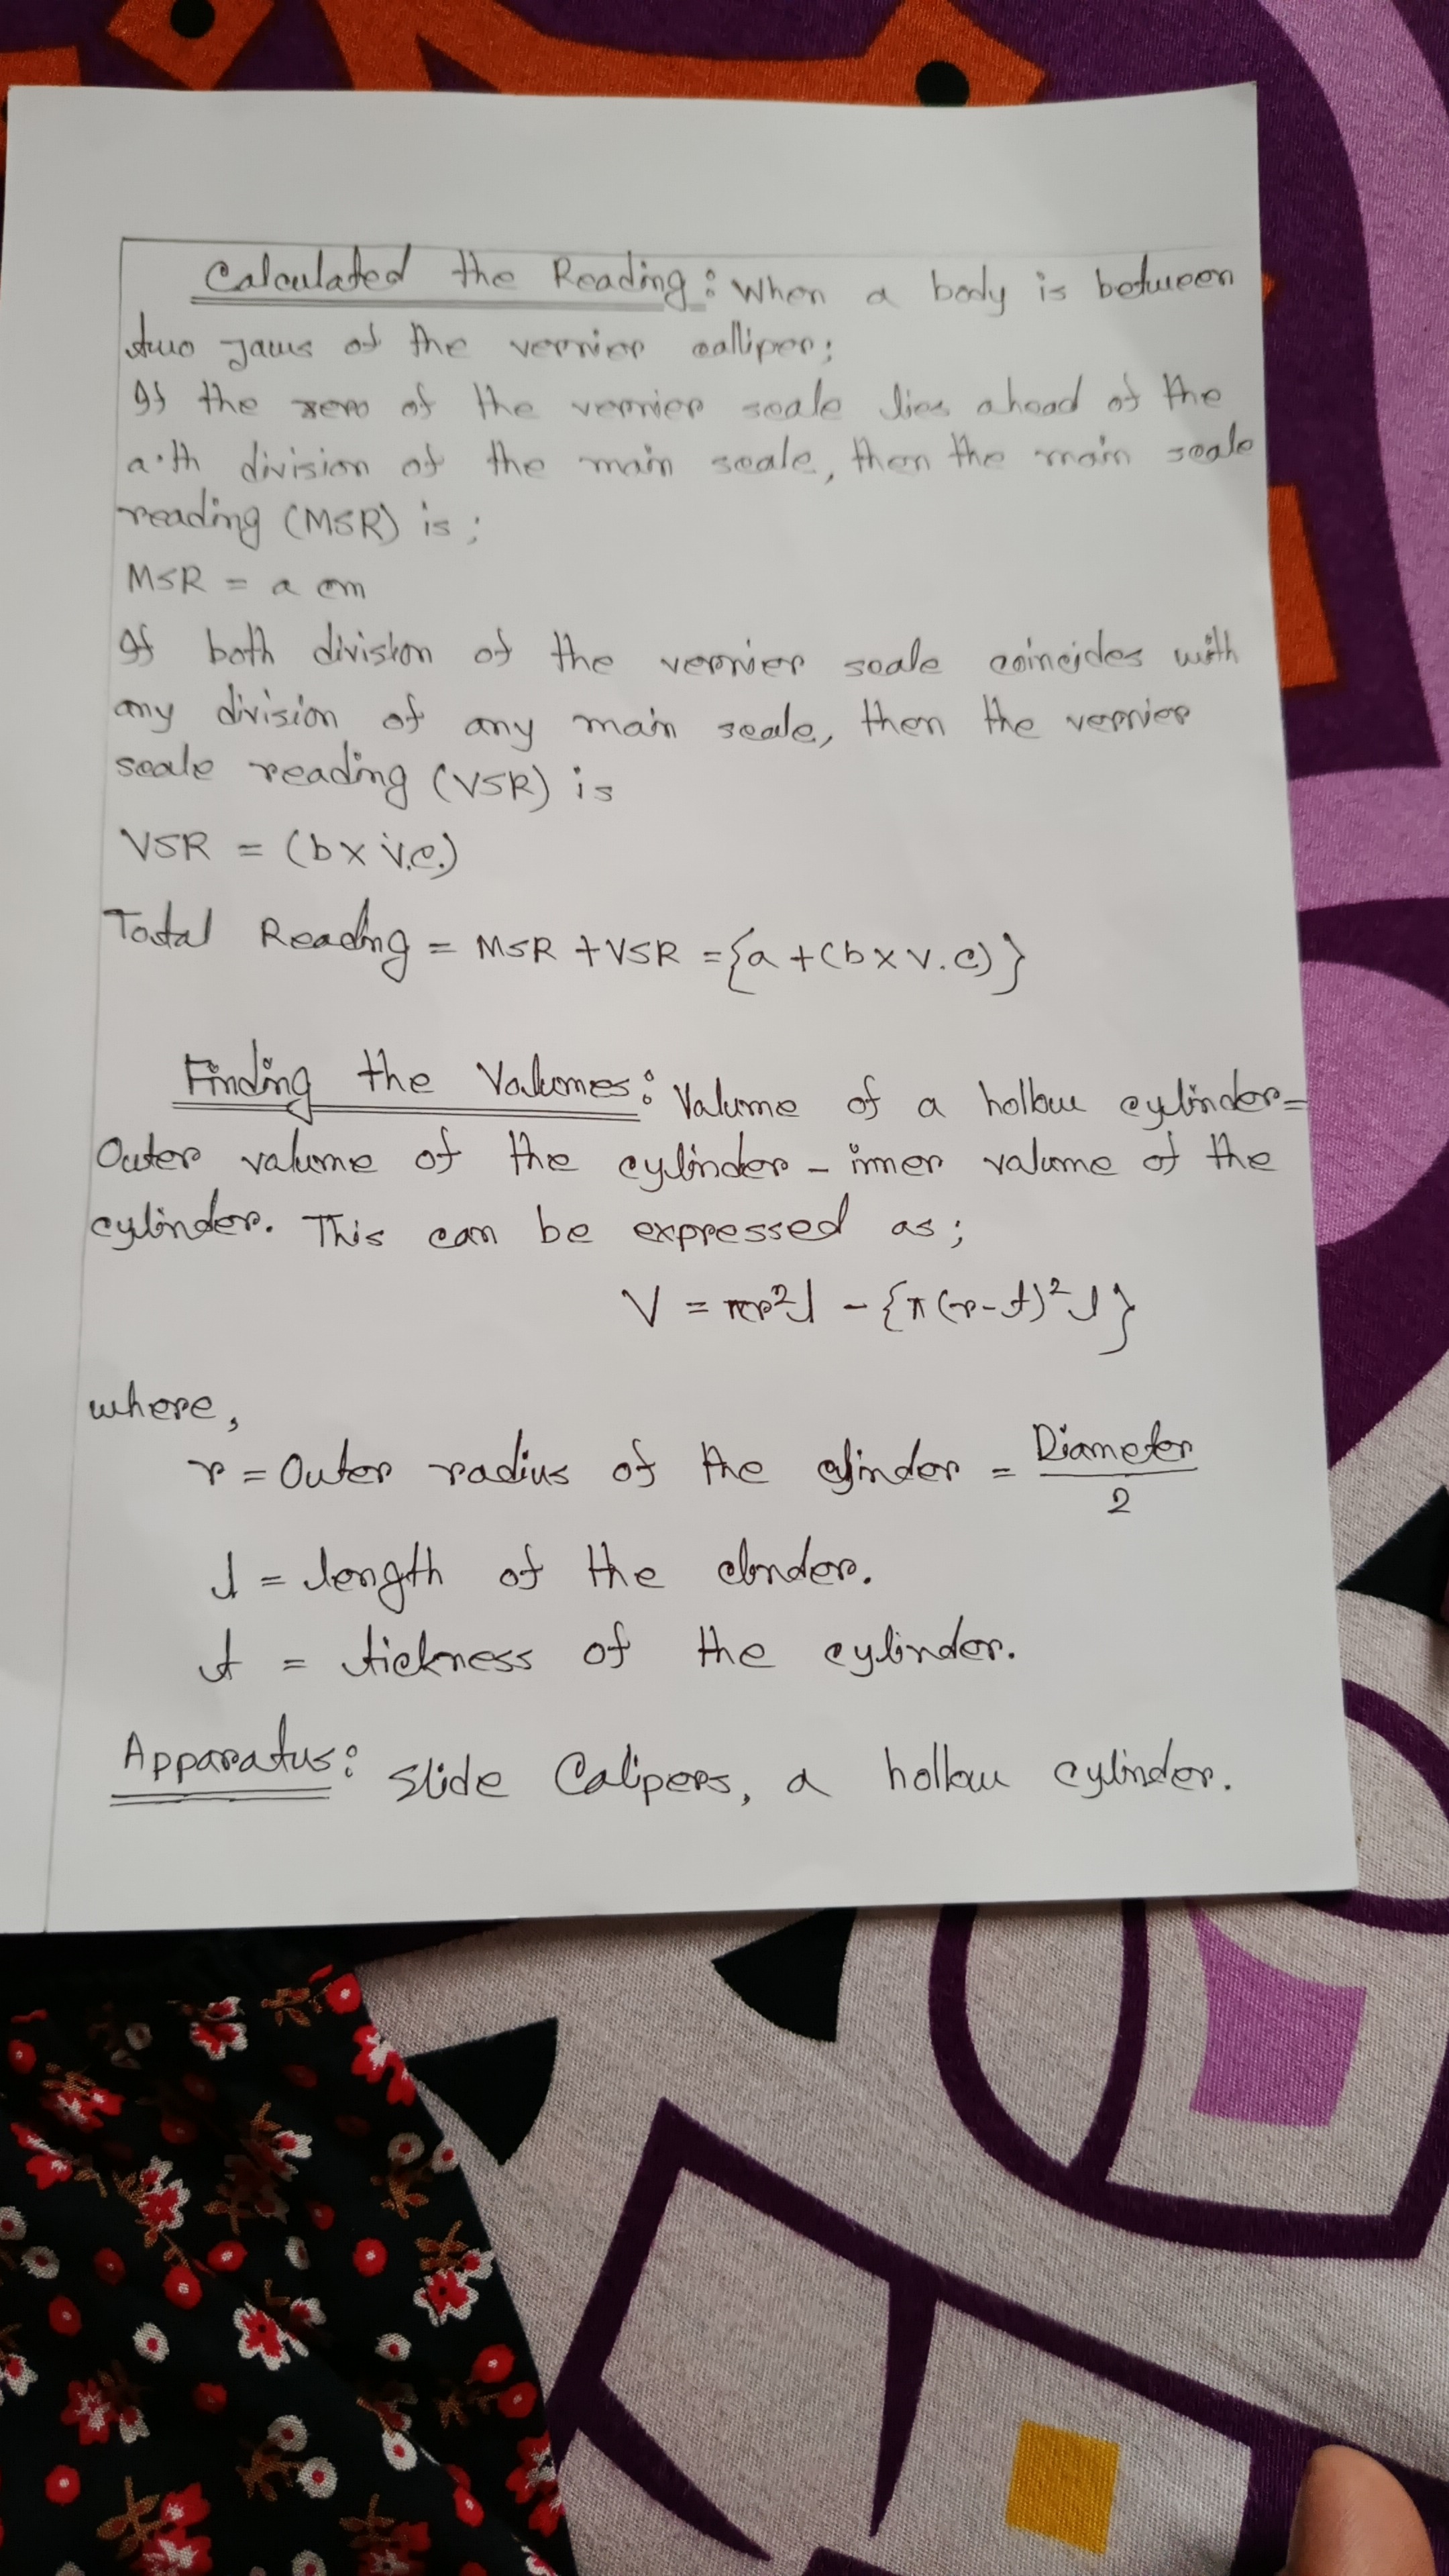 Calculated the Reading: When a body is between
two jaws of the vernier calliper;
If the zero of the vernier scale lies ahead of the
a.th division of the main scale, then the main scale
reading (MSR) is;
MSR = a cm
If both division of the vernier scale coincides with
any division of any main scale, then the vernier
scale reading (VSR) is
VSR = (b x v.c.)
Total Reading = MSR + VSR = {a + (b x v.c)}
Finding the Valumes: Valume of a hollow cylinder =
Outer valume of the cylinder - inner valume of the
cylinder. This can be expressed as;
V = πr²l - {π(r-t)²l}
where,
r = Outer radius of the cylinder = Diameter / 2
l = length of the clinder.
t = tickness of the cylinder.
Apparatus: Slide Calipers, a hollow cylinder.